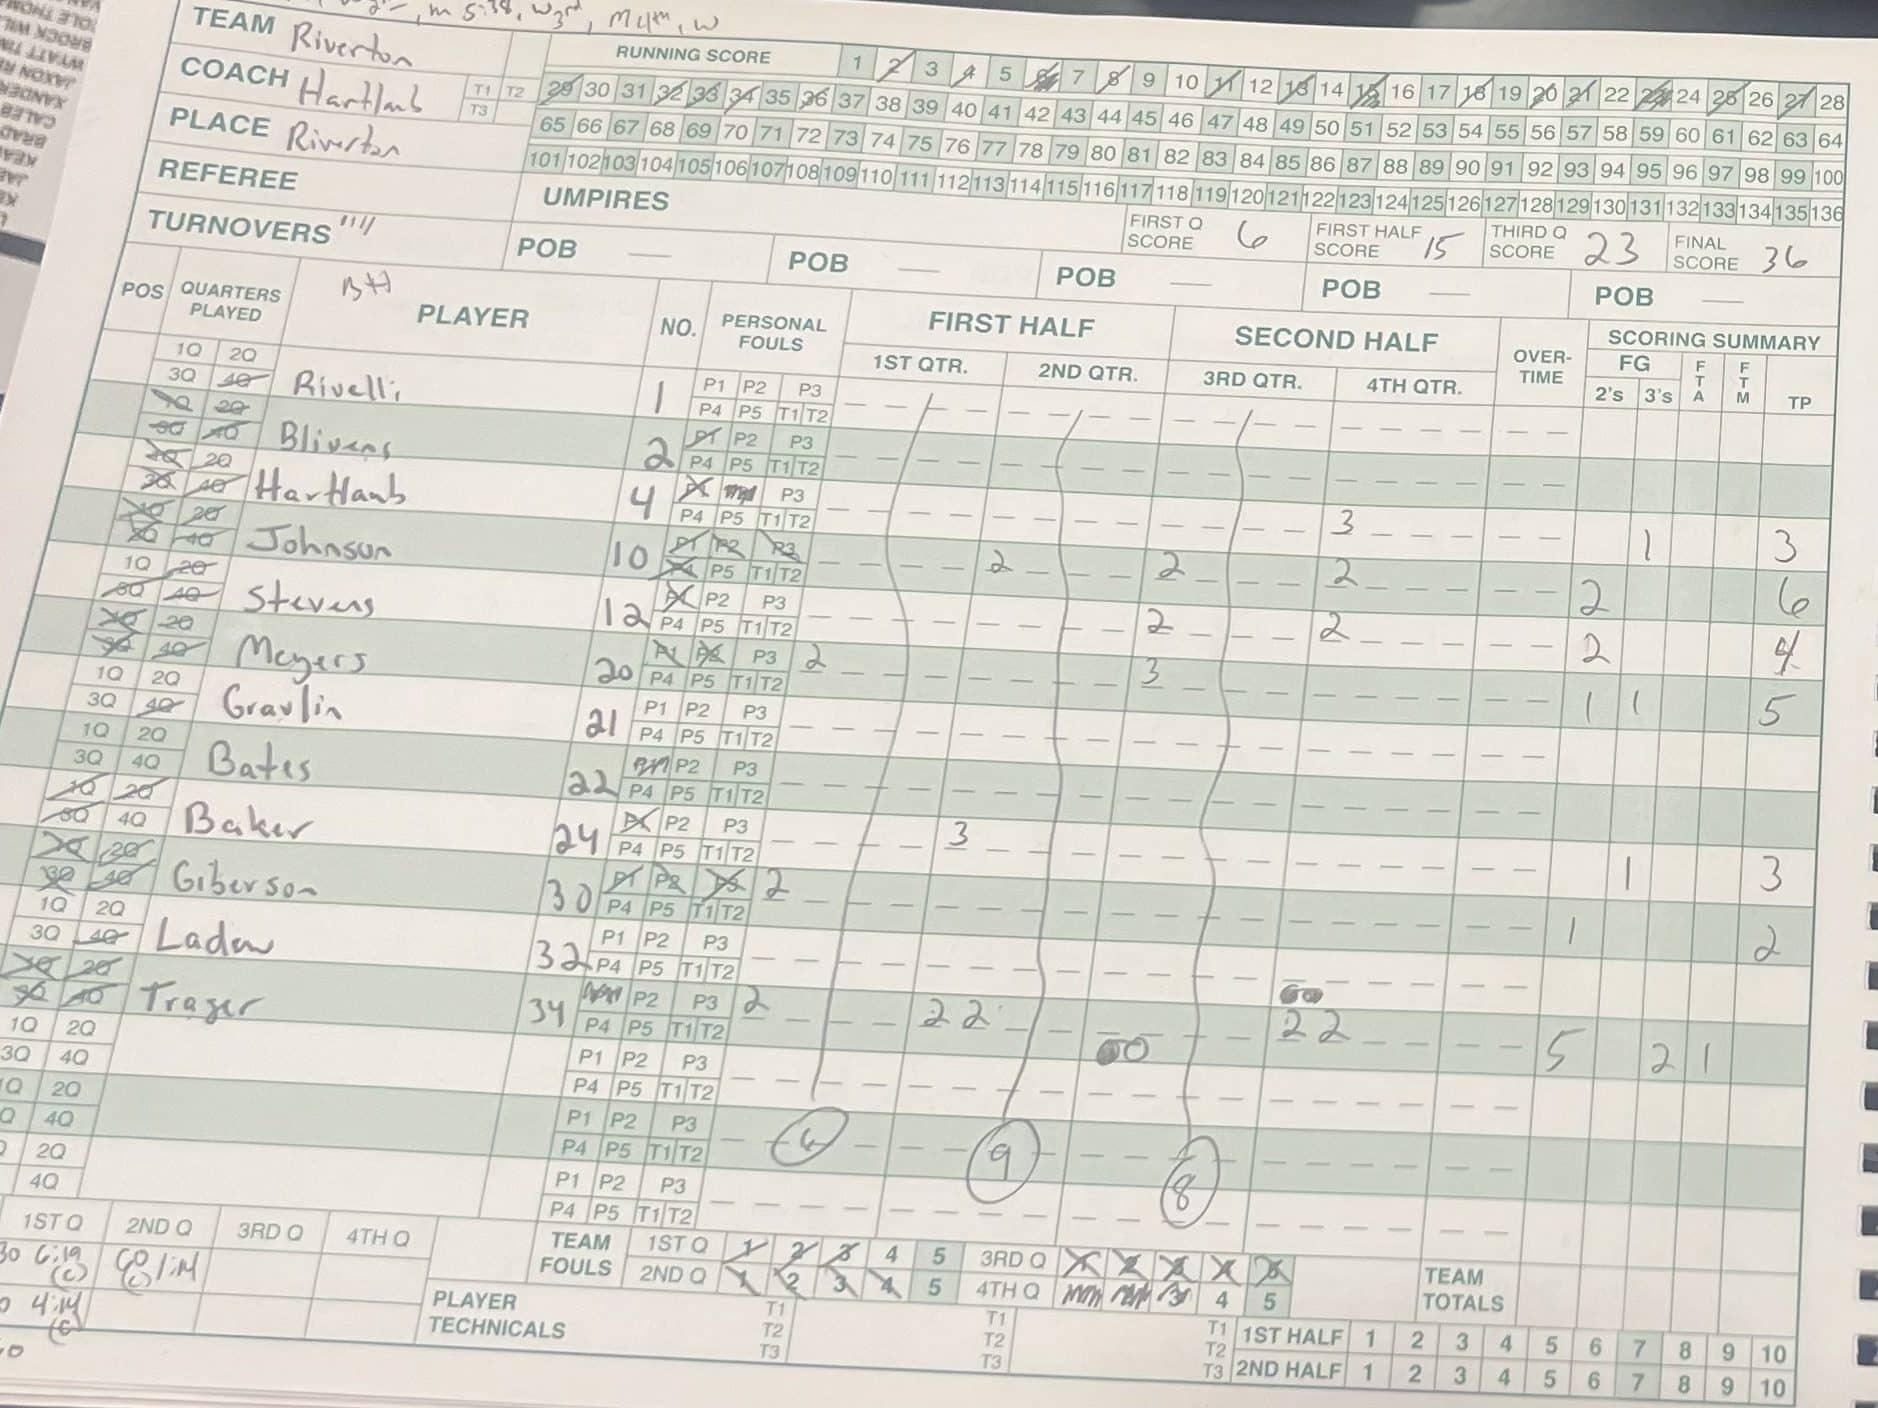 m 5:38, W3rd, M4th, W
TEAM Riverton
RUNNING SCORE 1 2 3 4 5 6 7 8 9 10 11 12 13 14 15 16 17 18 19 20 21 22 23 24 25 26 27 28
COACH Hartlaub T1 T2 T3
29 30 31 32 33 34 35 36 37 38 39 40 41 42 43 44 45 46 47 48 49 50 51 52 53 54 55 56 57 58 59 60 61 62 63 64
PLACE Riverton
65 66 67 68 69 70 71 72 73 74 75 76 77 78 79 80 81 82 83 84 85 86 87 88 89 90 91 92 93 94 95 96 97 98 99 100
101 102 103 104 105 106 107 108 109 110 111 112 113 114 115 116 117 118 119 120 121 122 123 124 125 126 127 128 129 130 131 132 133 134 135 136
REFEREE
UMPIRES
FIRST Q SCORE 6 FIRST HALF SCORE 15 THIRD Q SCORE 23 FINAL SCORE 36
TURNOVERS
POB — POB — POB — POB — POB —
POS QUARTERS PLAYED PLAYER NO. PERSONAL FOULS FIRST HALF SECOND HALF OVER-TIME SCORING SUMMARY
1ST QTR. 2ND QTR. 3RD QTR. 4TH QTR. FG 2's 3's FTA FTM TP
1Q 2Q 3Q 4Q Rivelli 1 P1 P2 P3 P4 P5 T1 T2
1Q 2Q 3Q 4Q Blivens 2 P1 P2 P3 P4 P5 T1 T2
1Q 2Q 3Q 4Q Hartlaub 4 P1 P3 P4 P5 T1 T2 3 1 3
1Q 2Q 3Q 4Q Johnson 10 P1 P2 P3 P4 P5 T1 T2 2 2 2 2 6
1Q 2Q 3Q 4Q Stevens 12 P1 P2 P3 P4 P5 T1 T2 2 2 2 4
1Q 2Q 3Q 4Q Meyers 20 P1 P2 P3 P4 P5 T1 T2 2 3 1 1 5
1Q 2Q 3Q 4Q Gravlin 21 P1 P2 P3 P4 P5 T1 T2
1Q 2Q 3Q 4Q Bates 22 P2 P3 P4 P5 T1 T2
1Q 2Q 3Q 4Q Baker 24 P1 P2 P3 P4 P5 T1 T2 3 1 3
1Q 2Q 3Q 4Q Giberson 30 P1 P2 P3 P4 P5 T1 T2 2 1 2
1Q 2Q 3Q 4Q Ladow 32 P1 P2 P3 P4 P5 T1 T2
1Q 2Q 3Q 4Q Trager 34 P2 P3 P4 P5 T1 T2 2 2 2 2 2 5 2 1
1Q 2Q 3Q 4Q P1 P2 P3 P4 P5 T1 T2
1Q 2Q 4Q P1 P2 P3 P4 P5 T1 T2 6 9 8
2Q 4Q P1 P2 P3 P4 P5 T1 T2
1ST Q 2ND Q 3RD Q 4TH Q
TEAM FOULS 1ST Q 1 2 3 4 5 3RD Q 1 2 3 4 5
2ND Q 1 2 3 4 5 4TH Q 3 4 5
TEAM TOTALS
PLAYER TECHNICALS T1 T2 T3 T1 T2 T3 T1 T2 T3
1ST HALF 1 2 3 4 5 6 7 8 9 10
2ND HALF 1 2 3 4 5 6 7 8 9 10